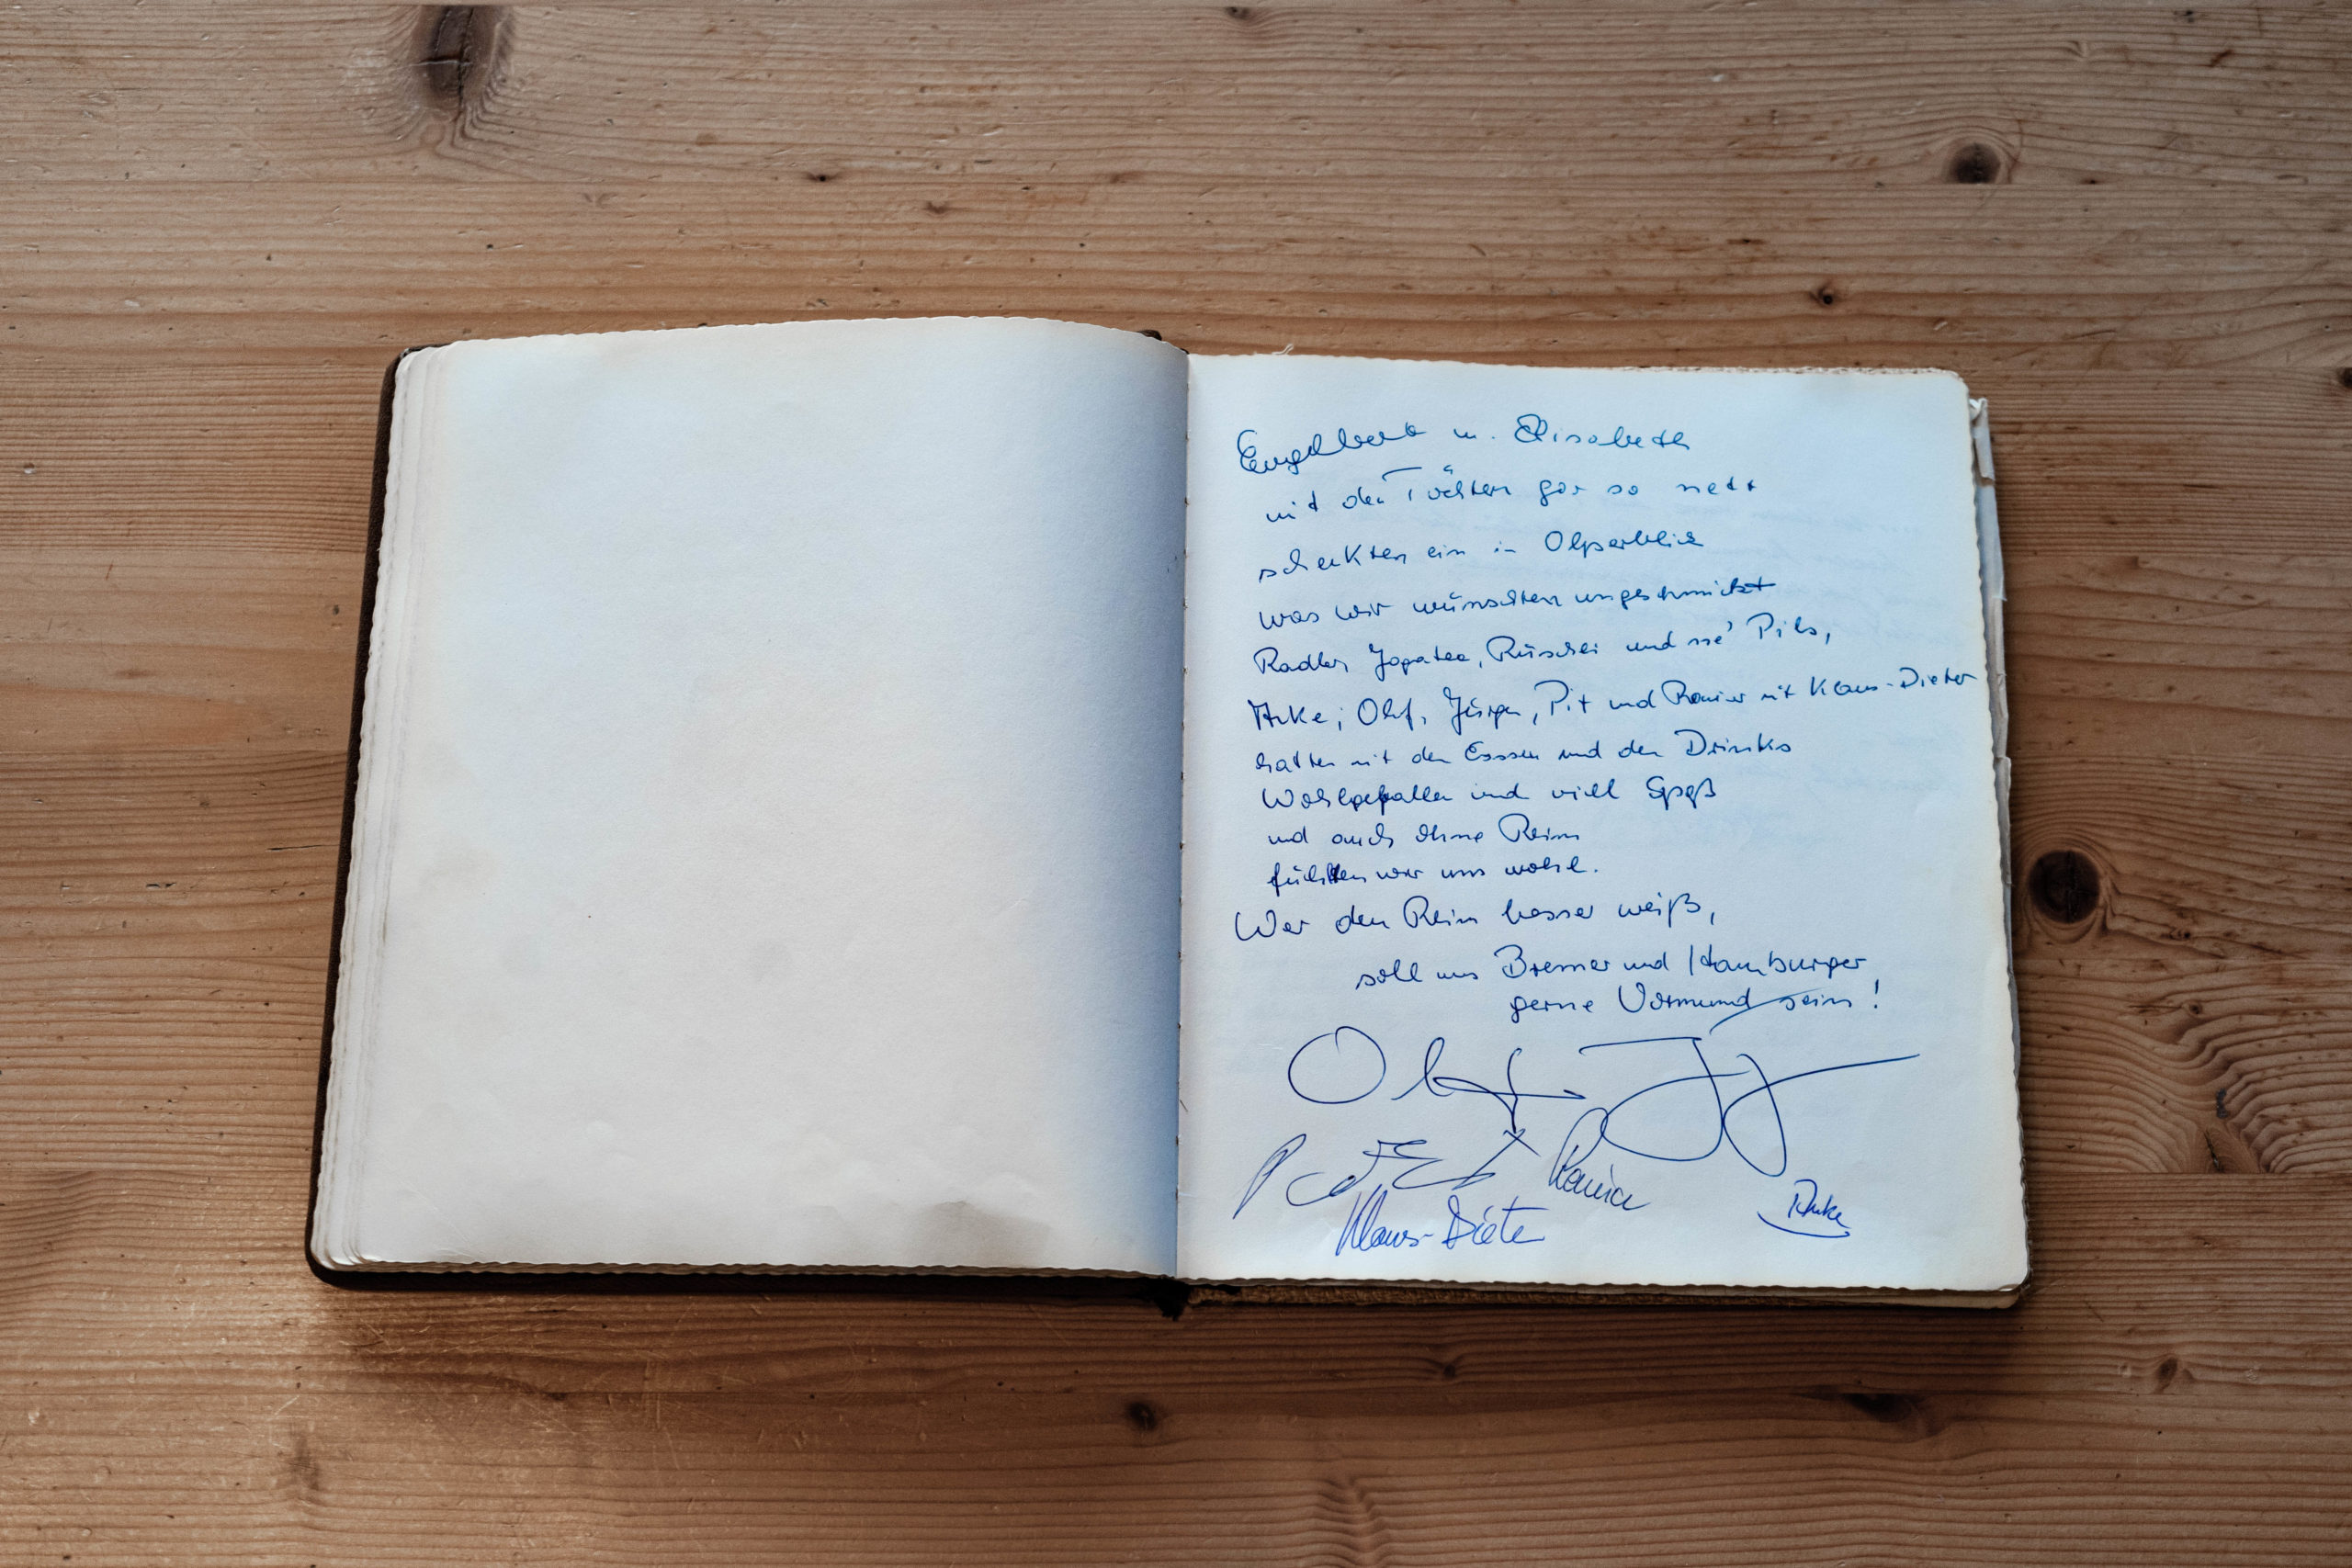 Engelbert u. Elisabeth
mit den Töchtern gar so nett
schenkten ein in Olperblick
was wir wünschten ungeschminkt
Radler Jagatee, Rüscherl und ne' Pils,
Anke, Olaf, Jürgen, Pit und Rainer mit Klaus-Dieter
hatten mit den Essen und den Drinks
Wohlgefallen und viell Spaß
und auch ohne Reim
fühlten wir uns wohl.
Wer den Reim besser weiß,
soll uns Bremer und Hamburger
gerne Vormund sein!
Olaf
Rainer
Klaus-Dieter
Anke